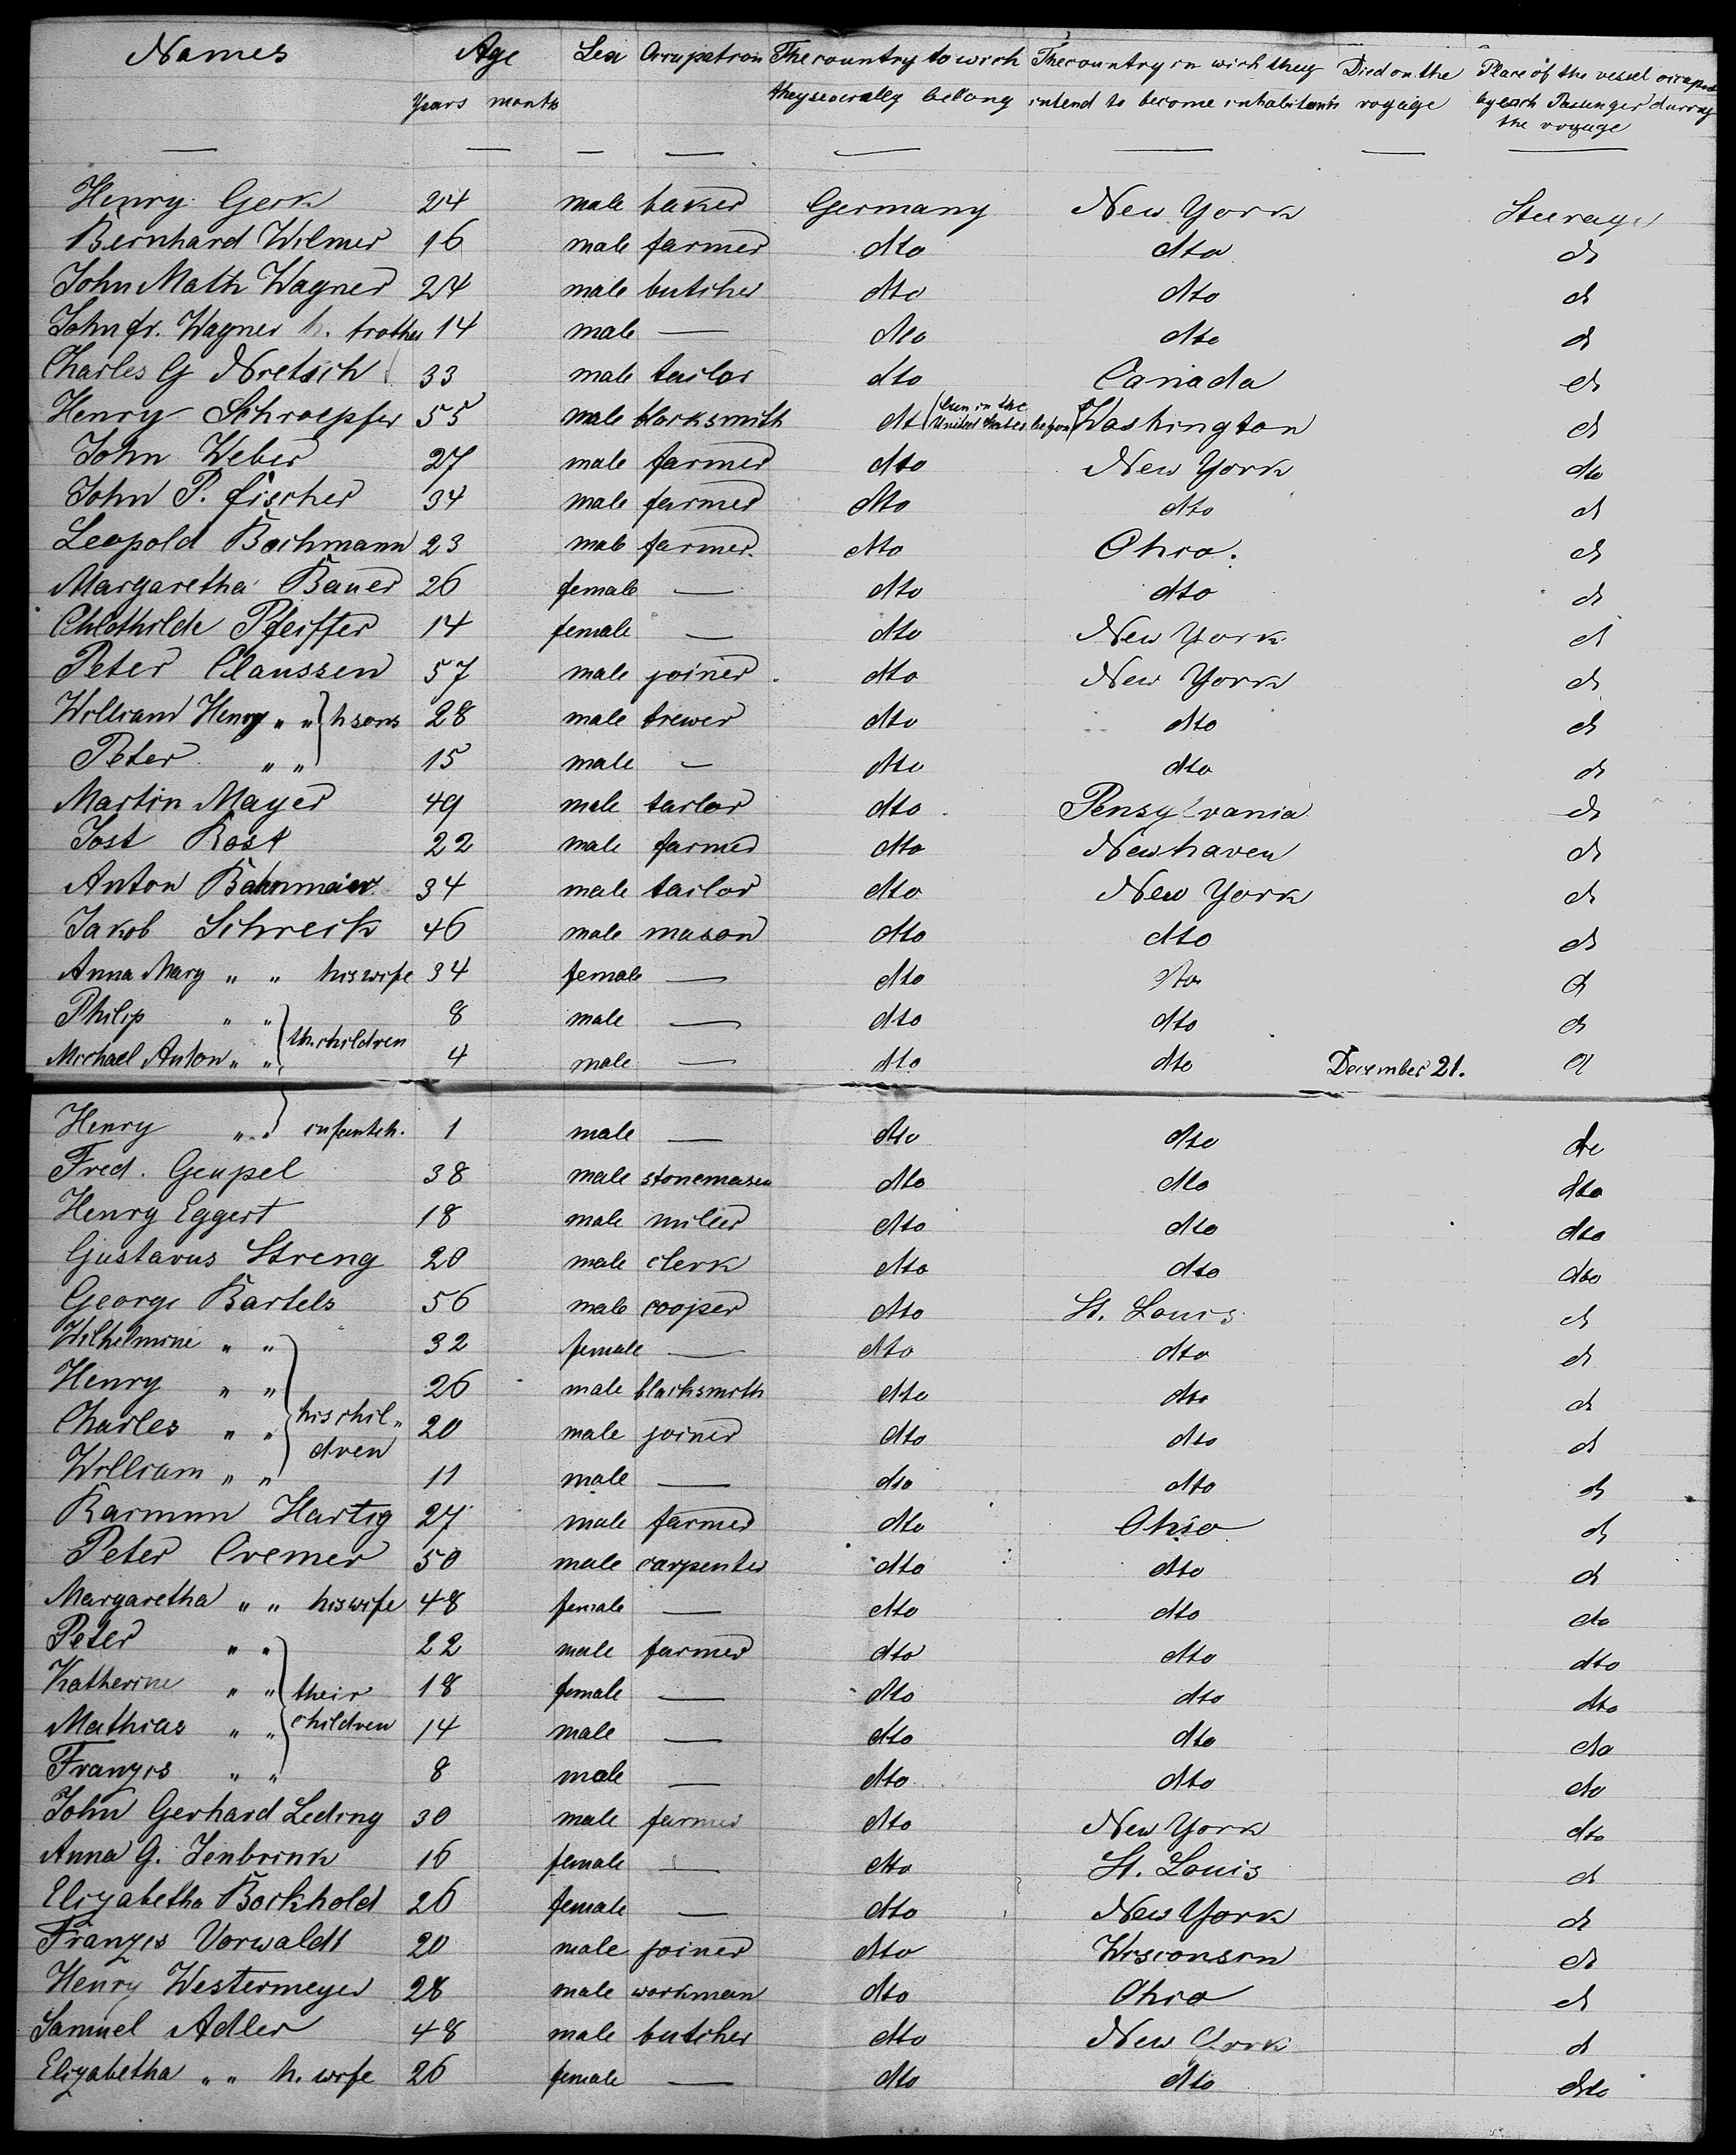 Names Age Sex Occupation The country to wich The country in wich they Died on the Place of the vessel occupied
Years month they severally belong intend to become inhabitants voyage by each Passenger during
the voyage
Henry Gerk 24 male baker Germany New York Steerage
Bernhard Wilmer 16 male farmer dto dto d
John Math Wagner 24 male butcher dto dto d
John fr. Wagner h. brother 14 male — dto dto d
Charles G Nretsch 33 male tailor dto Canada d
Henry Schroepfer 55 male blacksmith dt (been in the United States before) Washington d
John Weber 27 male farmer dto New York do
John P. fischer 34 male farmer dto dto d
Leopold Bachmann 23 male farmer. dto Ohio. d
Margaretha Bauer 26 female — dto dto d
Chlothilde Pfeiffer 14 female — dto New York d
Peter Claussen 57 male joiner dto New York d
William Henry " " } h sons 28 male brewer dto dto d
Peter " " 15 male — dto dto d
Martin Mayer 49 male tailor dto Pensylvania d
Jost Rost 22 male farmer dto Newhaven d
Anton Bahnmaier 34 male tailor dto New York d
Jakob Schreck 46 male mason dto dto d
Anna Mary " " his wife 34 female — dto dto d
Philip " " 8 male — dto dto d
Michael Anton " " } th. children 4 male — dto dto December 21. d
Henry " " infant ch. 1 male — dto dto do
Fred. Geupel 38 male stonemason dto dto dto
Henry Eggert 18 male miller dto dto dto
Gustavus Streng 20 male clerk dto dto dto
George Bartels 56 male cooper dto St. Louis d
Wilhelmine " " 32 female — dto dto d
Henry " " 26 male blacksmith dto dto d
Charles " " } his chil„ 20 male joiner dto dto d
William " " dren 11 male — dto dto d
Hartig 27 male farmer dto Ohio d
Peter Cremer 50 male carpenter dto dto d
Margaretha " " his wife 48 female — dto dto do
Peter " " 22 male farmer dto dto dto
Katherine " " } their 18 female — dto dto dto
Mathias " " children 14 male — dto dto do
Franzis " " 8 male — dto dto do
John Gerhard Leding 30 male farmer dto New York dto
Anna G. Jenbrink 16 female — dto St. Louis d
Elizabetha Bockhold 26 female — dto New York d
Franzis Vorwaldt 20 male joiner dto Wisconsin d
Henry Westermeyer 28 male workman dto Ohio d
Samuel Adler 48 male butcher dto New York d
Elizabetha " " h. wife 26 female — dto dto dto